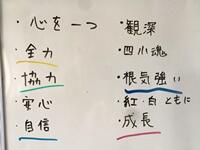 ・心を一つ
・全力
・協力
・実心
・自信
・観深
・四小魂
・根気強い
・紅・白ともに
・成長